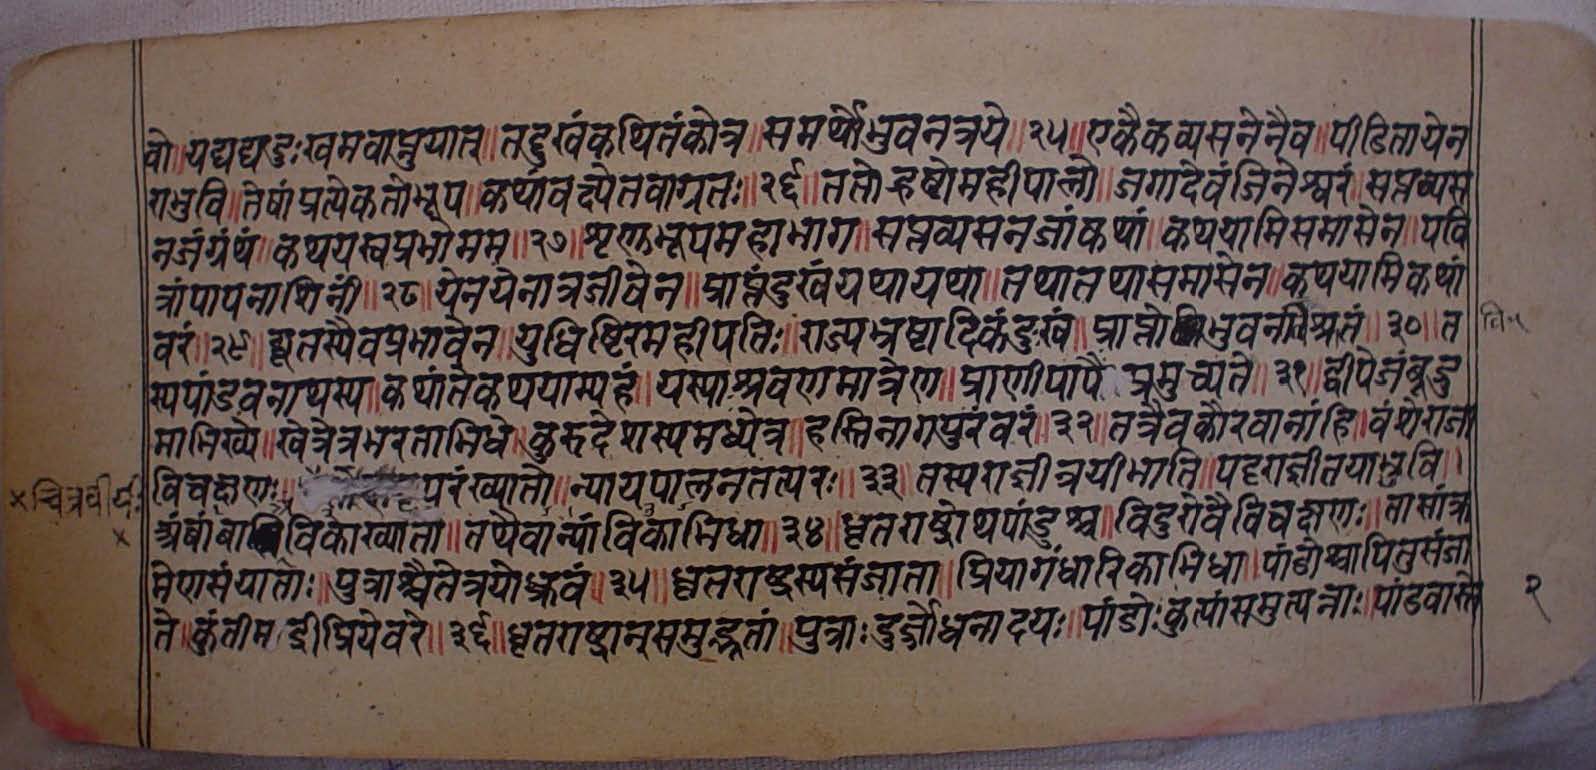 वो॥यद्यद्यदुःखमवाप्नुयात्॥तद्दुखंकथितंकोत्र॥समर्थोभुवनत्रये॥२५॥एकैकव्यसनेनैव॥पीडितायेन
राभुवि॥तेषांप्रत्येकतोभूप॥कथांवक्ष्येतवाग्रतः॥२६॥ततोहृष्टोमहीपालो॥जगादेवंजिनेश्वरं॥सप्तव्यस
नजंग्रंथं॥कथयस्वप्रभोमम॥२७॥शृणुभूपमहाभाग॥सप्तव्यसनजांकथां॥कथयामिसमासेन॥पवि
त्रांपापनाशिनीं॥२८॥येनयेनात्रजीवेन॥प्राप्तंदुखंयथायथा॥तथातथासमासेन॥कथयामिकथां
वरं॥२९॥द्यूतस्यैवप्रभावेन॥युधिष्टिरमहीपतिः॥राज्यभ्रष्टादिकंदुःखं॥प्राप्तो भुवन श्रुतं॥३०॥त
स्यपांडवनाथस्य॥कथांतेकथयाम्यहं॥यस्याश्रवणमात्रेण॥प्राणीपापै प्रमुच्यते॥३१॥द्वीपेजंबूद्रु
माभिख्ये॥खेत्रेत्रभरताभिधे॥कुरुदेशस्यमध्येत्र॥हस्तिनागपुरंवरं॥३२॥तत्रैवकौरवानांहि॥वंशेराजा
×चित्रवीर्यः
विचक्षणः॥ परंख्यातो॥न्यायपालनतत्परः॥३३॥तस्यराज्ञीत्रयीभाति॥पट्टराज्ञीतयाभुवि॥
अंबांबा विकाख्याता॥तथैवान्यांविकाभिधा॥३४॥धृतराष्ट्रोथपांडुश्च॥विदुरोवैविचक्षणः॥तासांक्र
मेणसंयातोः॥पुत्राश्चैतेत्रयोद्भवं॥३५॥धृतराष्ट्रस्यसंजाता॥प्रियागंधारिकाभिधा॥पांडोश्चापितुसंजा
ते॥कुंतीमद्रीप्रियेवरे॥३६॥धृतराष्ट्रात्समुद्भूतां॥पुत्राःदुर्जोधनादयः॥पांडोःकुत्यांसमुत्पनाः॥पांडवास्ते
२